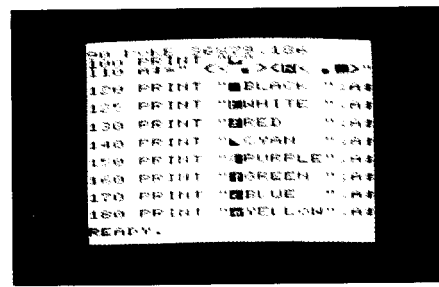 90 POKE 36879,186
100 PRINT "
110 A$="
120 PRINT "BLACK ";A$
125 PRINT "WHITE ";A$
130 PRINT "RED ";A$
140 PRINT "CYAN ";A$
150 PRINT "PURPLE";A$
160 PRINT "GREEN ";A$
170 PRINT "BLUE ";A$
180 PRINT "YELLOW";A$
READY.